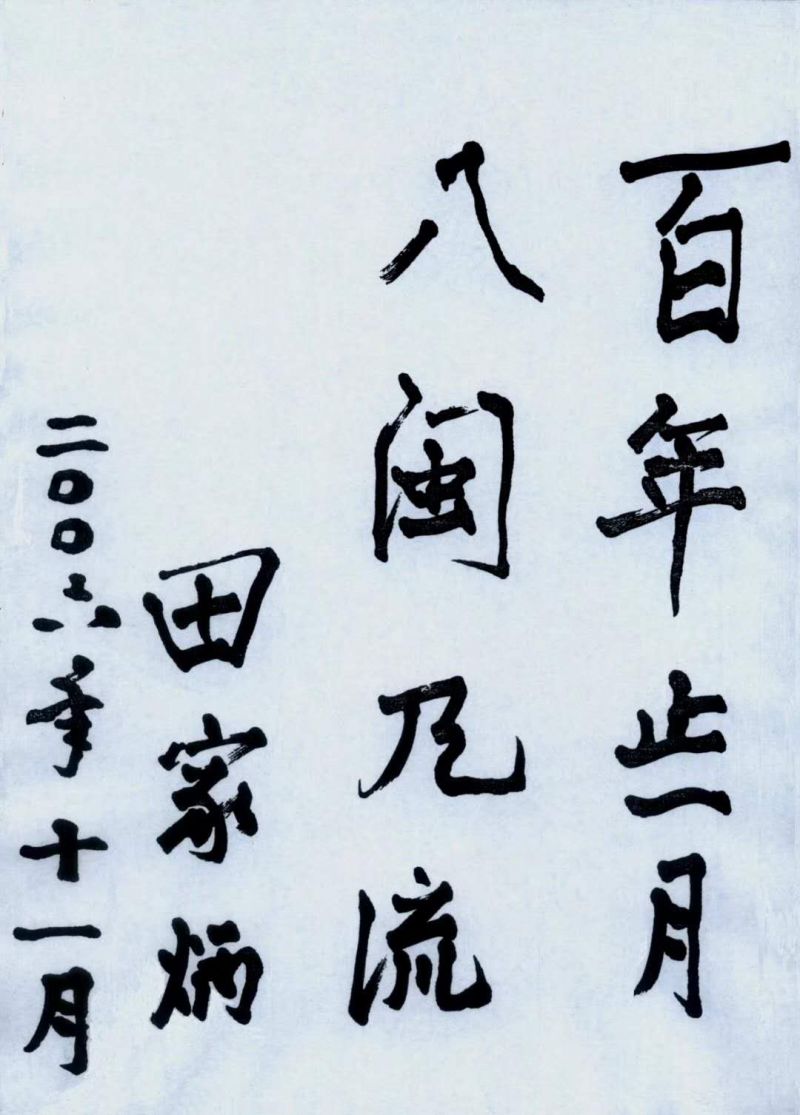 百年月
八闽流
田家炳
二〇〇六年十一月